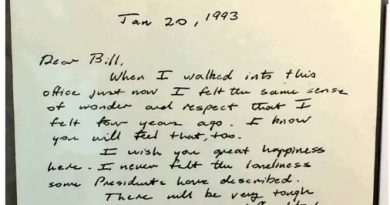 Jan 20, 1993
Dear Bill,
When I walked into this
office just now I felt the same sense
of wonder and respect that I
felt four years ago. I know
you will feel that, too.
I wish you great happiness
here. I never felt the loneliness
some Presidents have described.
There will be very tough